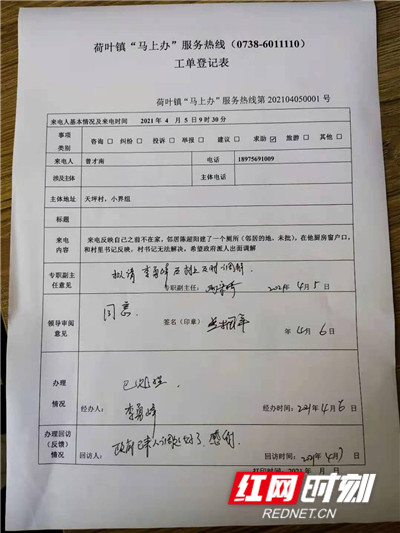 荷叶镇“马上办”服务热线（0738-6011110）
工单登记表
荷叶镇“马上办”服务热线第 202104050001 号
来电人基本情况及来电时间 2021 年 4 月 5 日 9 时 30 分
事项类别 咨询 □ 纠纷 □ 投诉 □ 举报 □ 建议 □ 求助 ☑ 旅游 □ 其他 □
来电人 曾才南 电话 18975691009
涉及主体 主体电话
主体地址 天坪村，小界组
标题
来电内容 来电反映自己之前不在家，邻居陈超阳建了一个厕所（邻居的地，未批），在他厨房窗户口，
和村里书记反映，村书记无法解决，希望政府派人出面调解
专职副主任意见 拟请李勇峰 及时调解
专职副主任： 2021年4月5日
领导审阅意见 同意
签名（印章） 年4月6日
办理情况 已处理
经办人： 李勇峰 经办时间：2021年4月6日
办理回访（反馈）情况 政府已来人调解好了，感谢
回访人： 回访时间：2021年4月7日
打印时间：2021 年 月 日
红网时刻
REDNET.CN